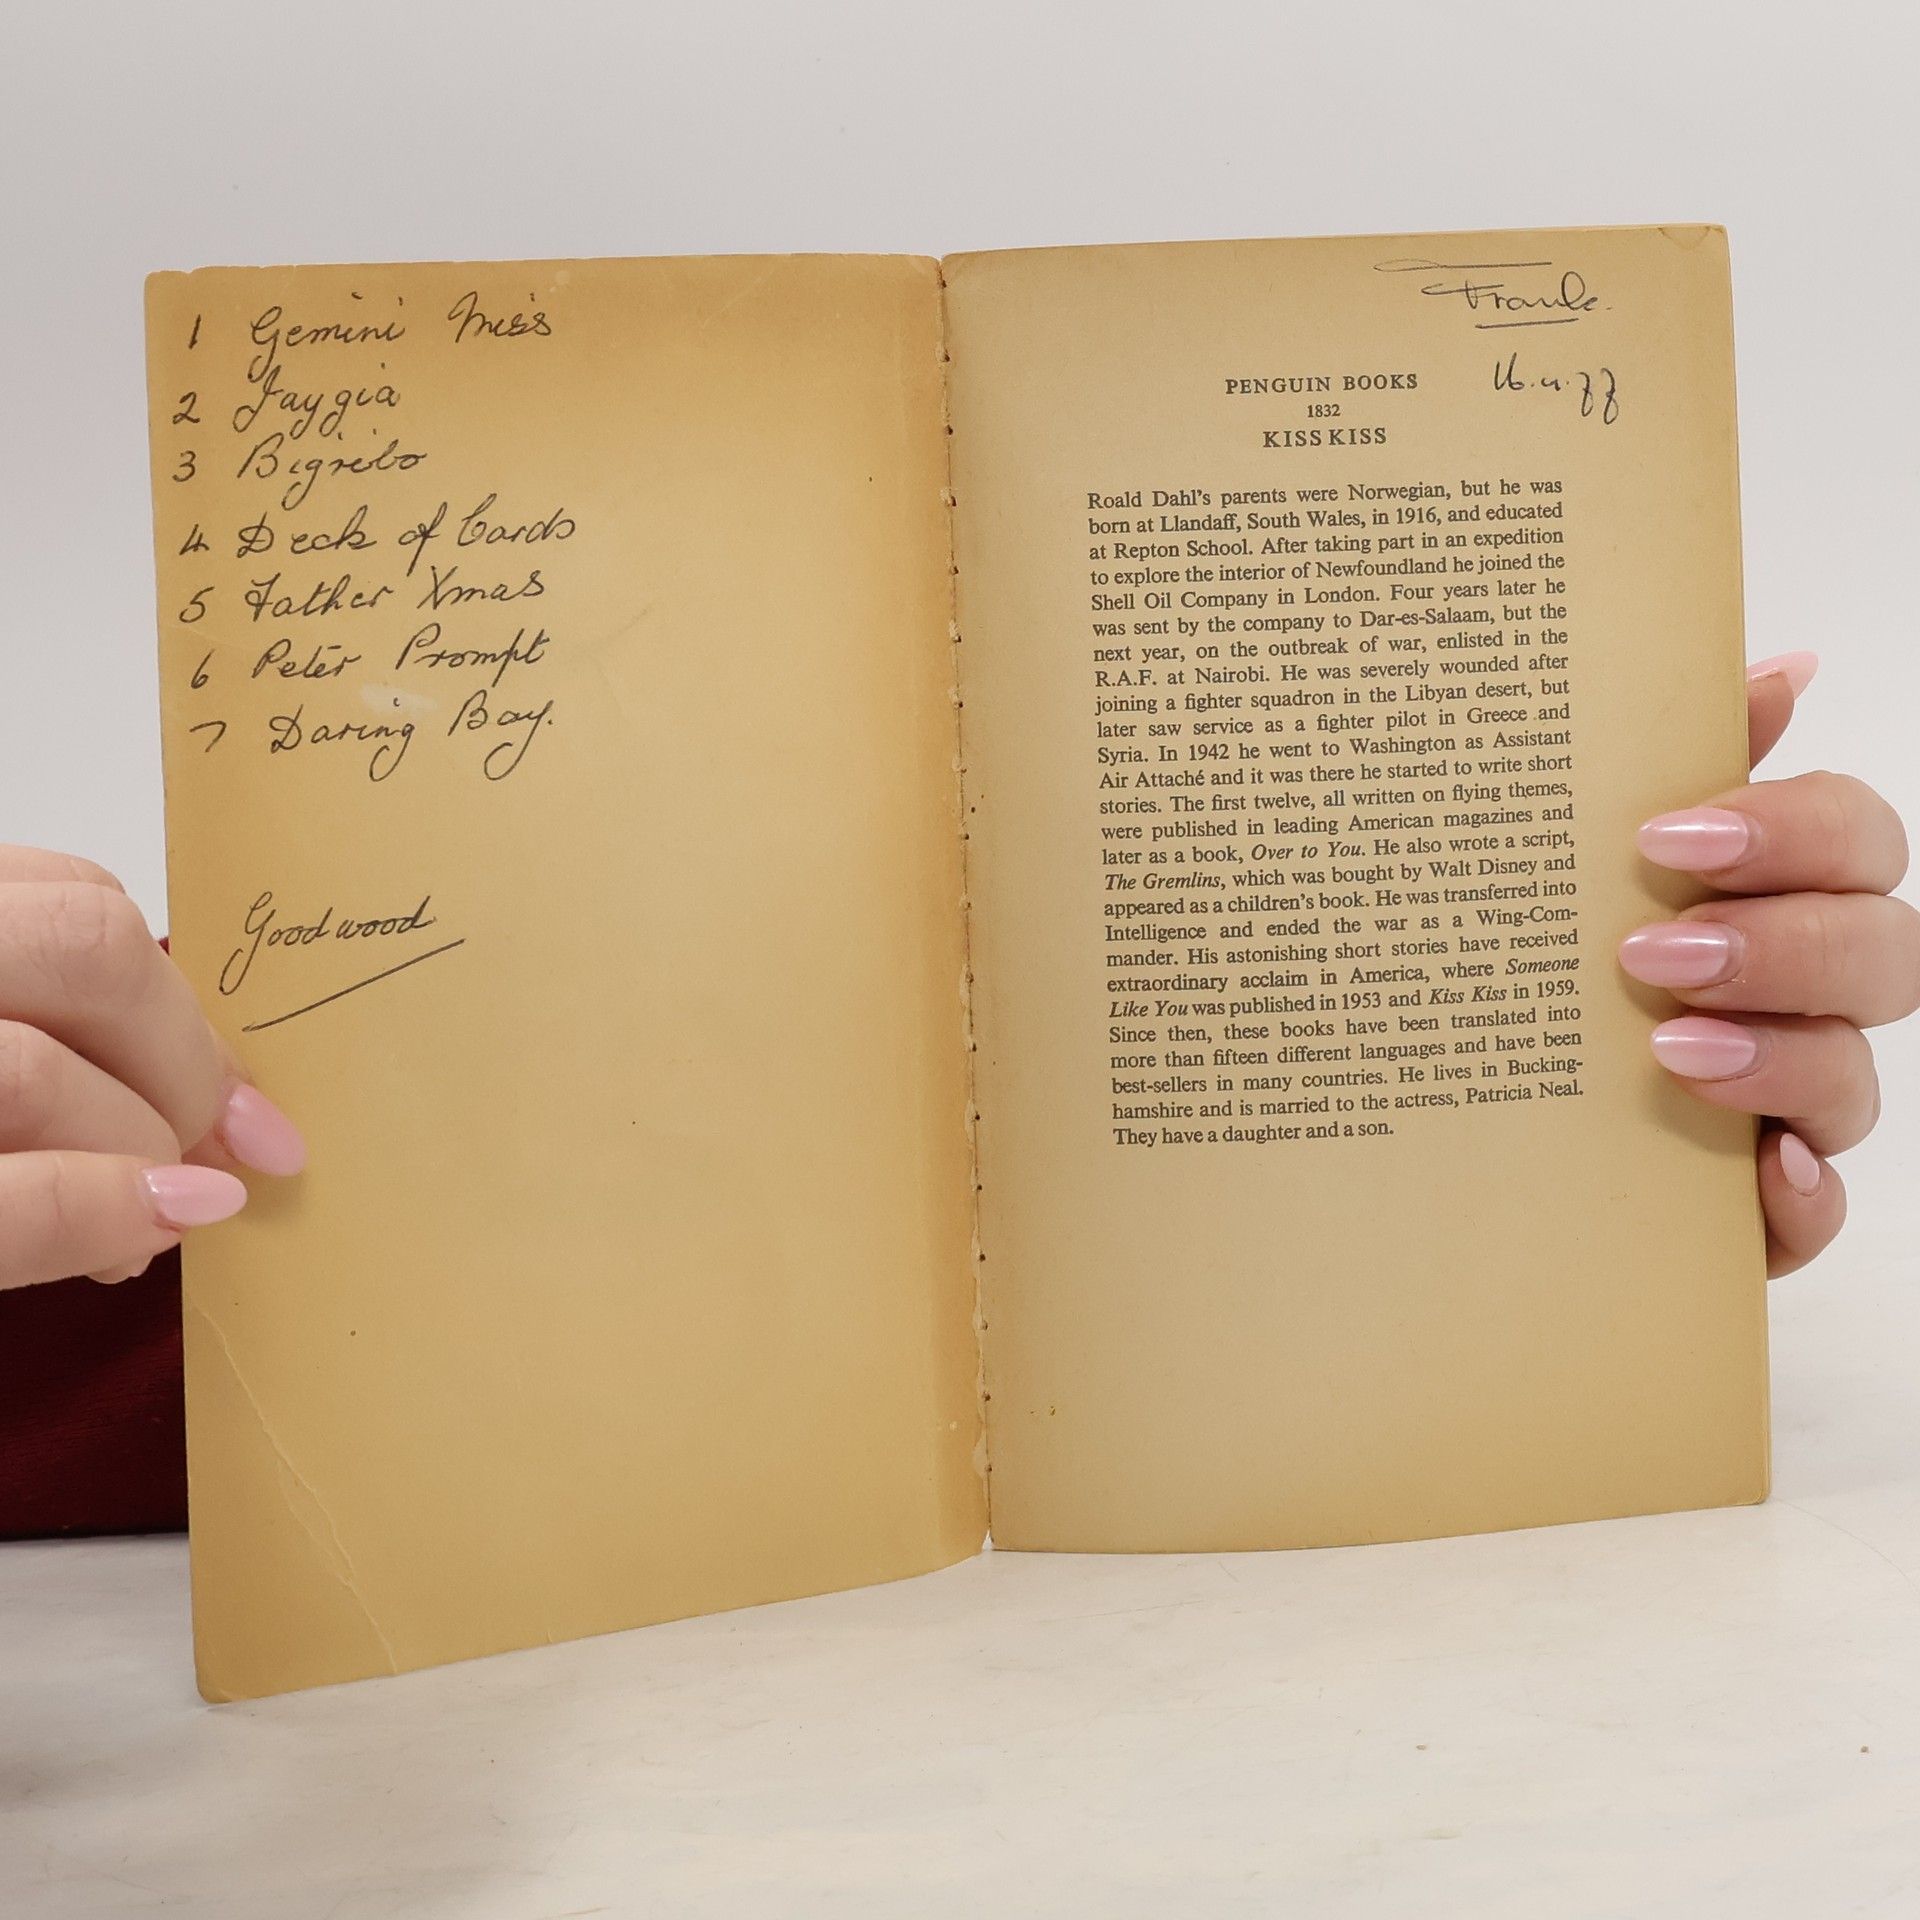 1 Gemini Miss
2 Jaygia
3 Bigribo
4 Deck of Cards
5 Father Xmas
6 Peter Prompt
7 Daring Boy.
Goodwood
Frank.
PENGUIN BOOKS
1832
KISS KISS
Roald Dahl's parents were Norwegian, but he was
born at Llandaff, South Wales, in 1916, and educated
at Repton School. After taking part in an expedition
to explore the interior of Newfoundland he joined the
Shell Oil Company in London. Four years later he
was sent by the company to Dar-es-Salaam, but the
next year, on the outbreak of war, enlisted in the
R.A.F. at Nairobi. He was severely wounded after
joining a fighter squadron in the Libyan desert, but
later saw service as a fighter pilot in Greece and
Syria. In 1942 he went to Washington as Assistant
Air Attaché and it was there he started to write short
stories. The first twelve, all written on flying themes,
were published in leading American magazines and
later as a book, Over to You. He also wrote a script,
The Gremlins, which was bought by Walt Disney and
appeared as a children's book. He was transferred into
Intelligence and ended the war as a Wing-Com-
mander. His astonishing short stories have received
extraordinary acclaim in America, where Someone
Like You was published in 1953 and Kiss Kiss in 1959.
Since then, these books have been translated into
more than fifteen different languages and have been
best-sellers in many countries. He lives in Bucking-
hamshire and is married to the actress, Patricia Neal.
They have a daughter and a son.